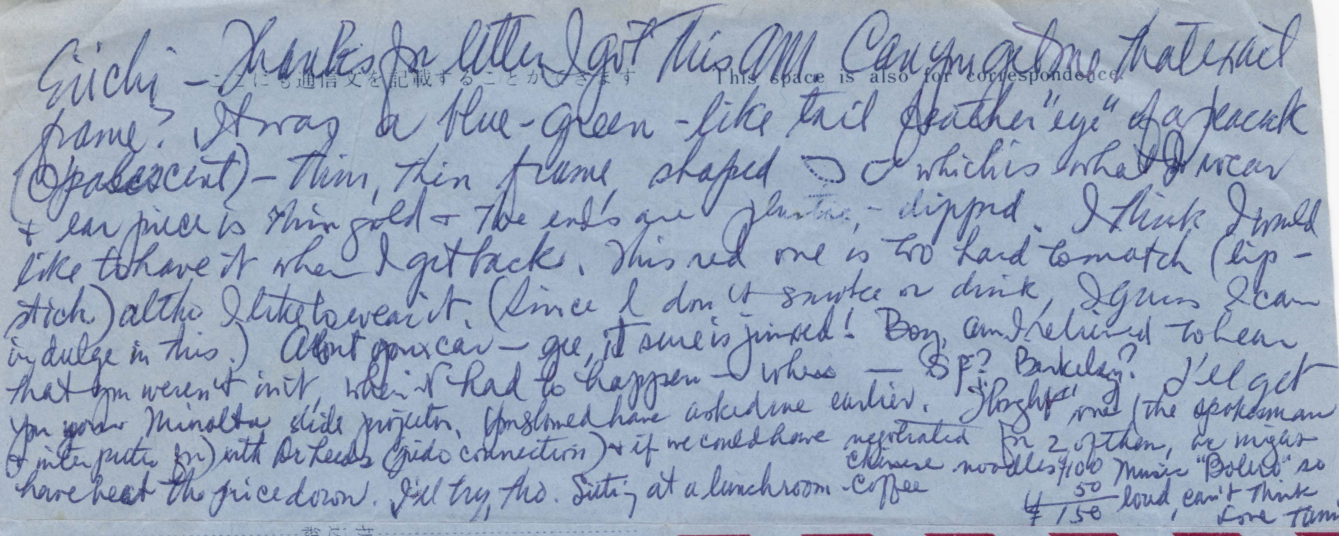 Eiichi - Thanks for letter I got this AM. Can you get me that exact
ここにも通信文を記載することができます This space is also for correspondence.
frame? It was a blue-green - like tail feather "eye" of a peacock
(Opalescent) - thin, thin frame, shaped which is what I wear
+ ear piece is thin gold + the ends are dipped. I think I would
like to have it when I get back. This red one is too hard to match (lip-
stick) altho I like to wear it. (Since I don't smoke or drink, I guess I can
indulge in this.) About your car - gee, it sure is jinxed! Boy, am I relieved to hear
that you weren't in it, when it had to happen - where - SF? Berkeley? I'll get
you your Minolta slide projector. You should have asked me earlier. I bought one (the spokesman
+ interpreter for) with Dr Leeds + if we could have negotiated for 2 of them, we might
have beat the price down. I'll try, tho. Sitting at a lunchroom - coffee
chinese noodles ¥100
50
¥ 150
Music "Bolero" so
loud, can't think
Love